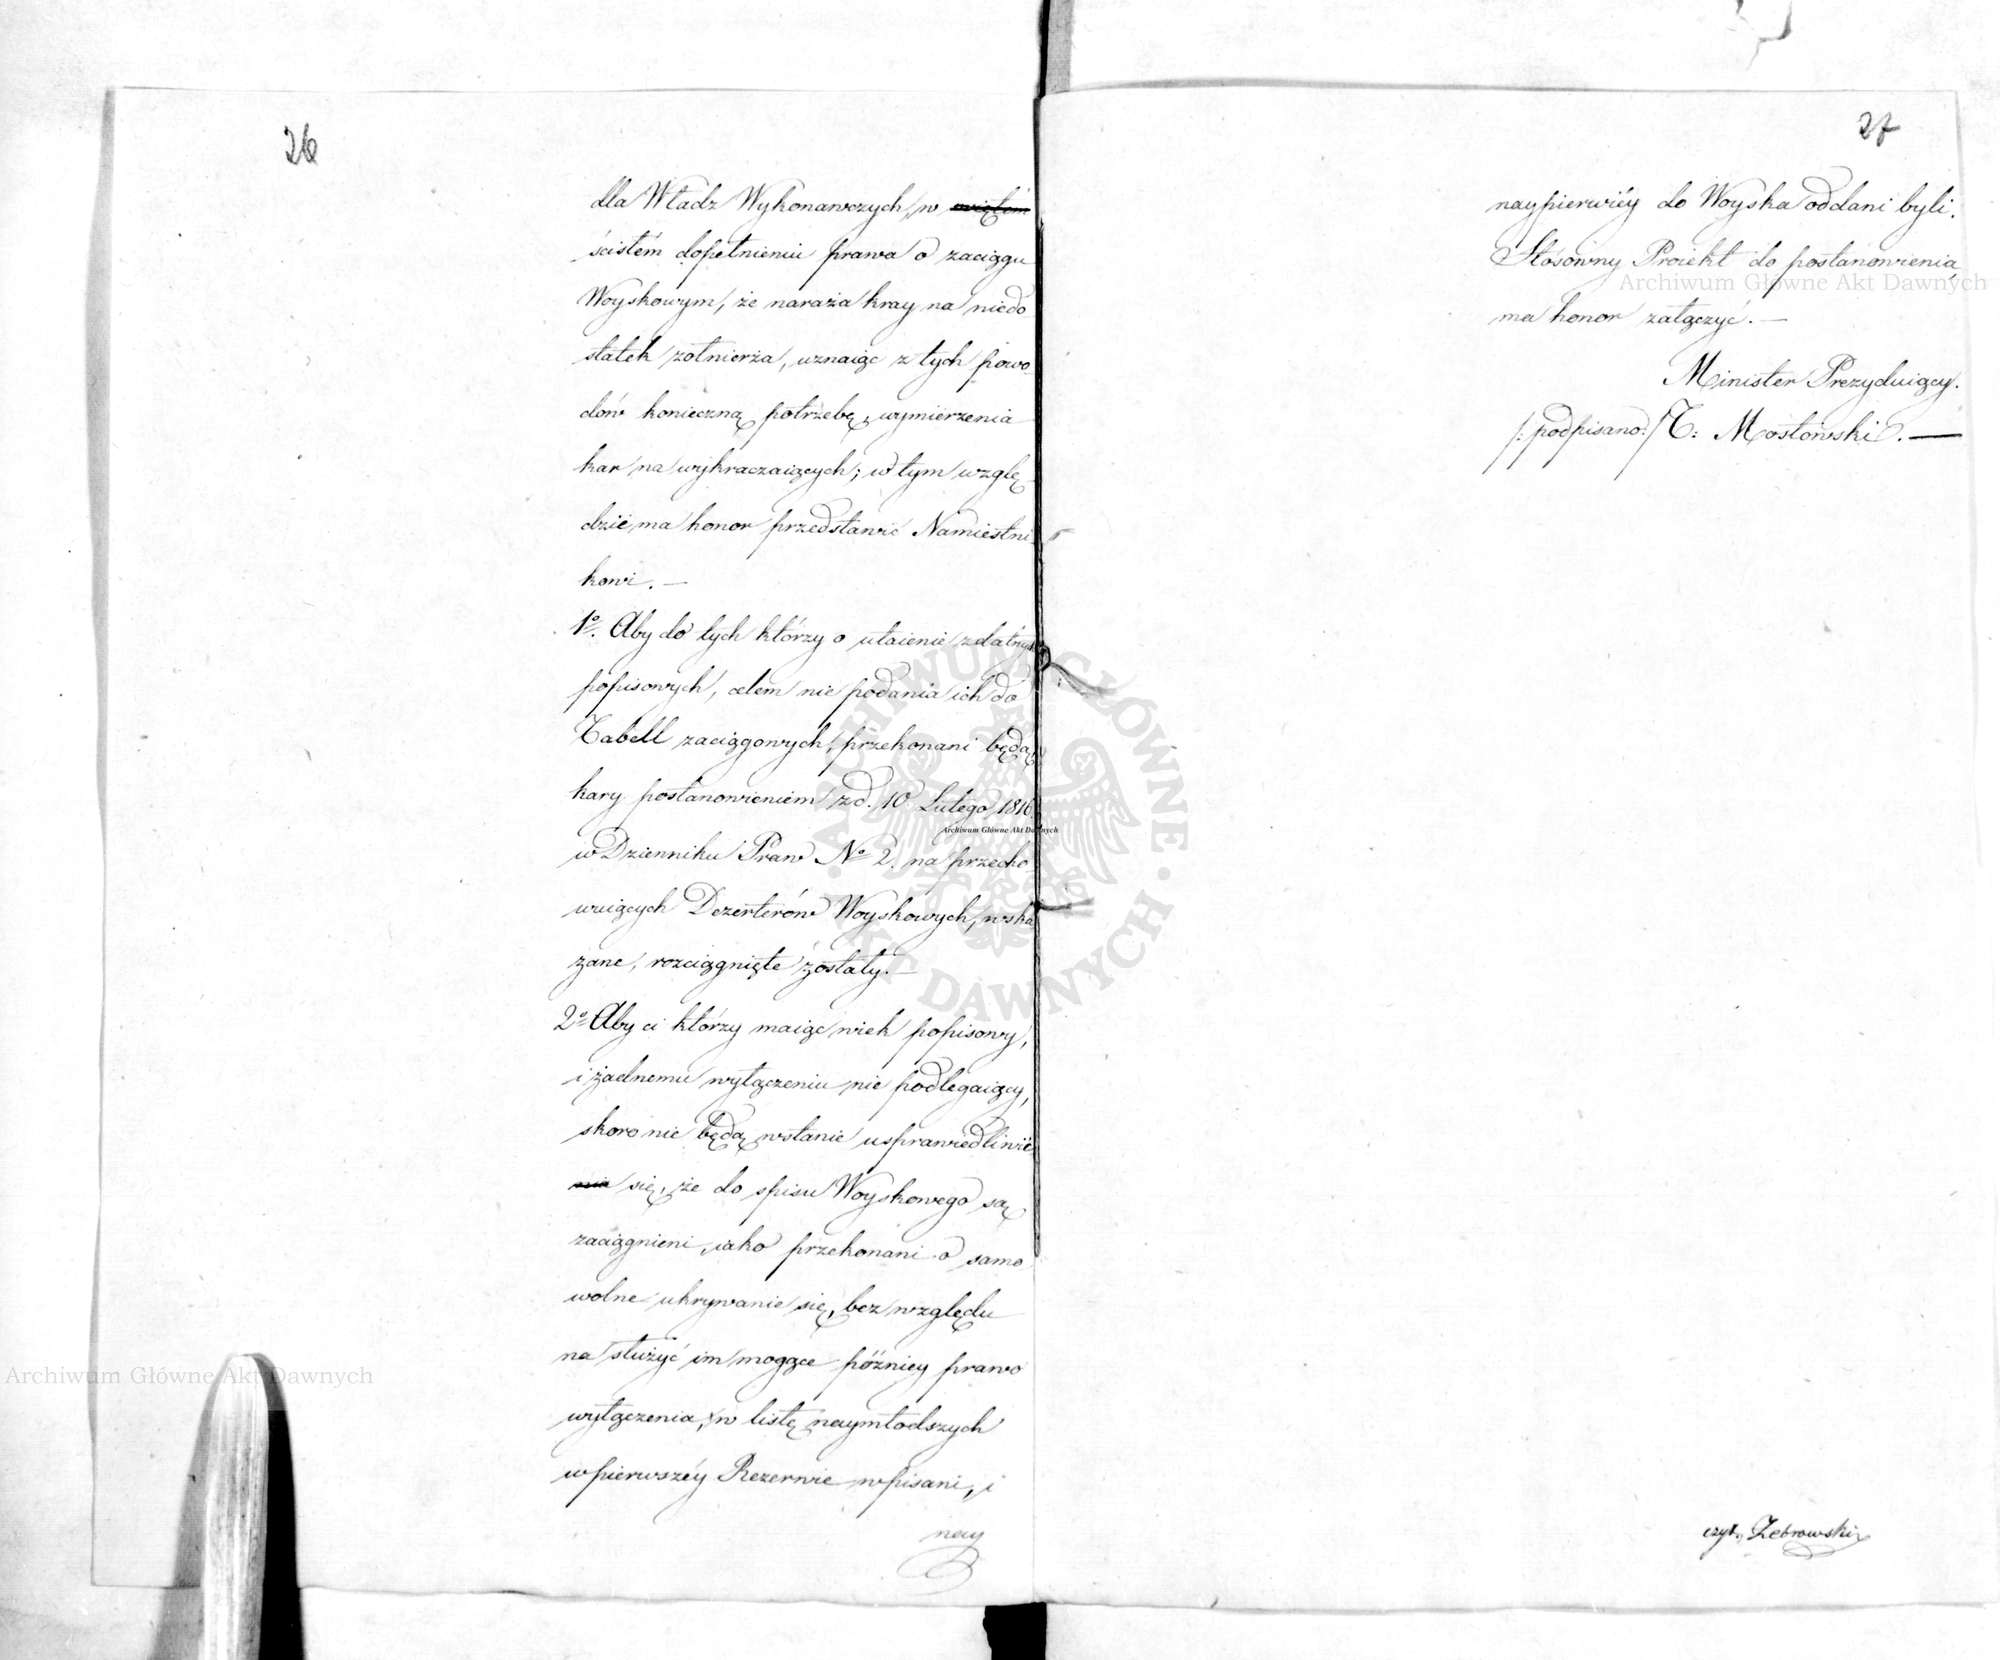 26
dla Władz Wykonawczych, w
ścistém dopełnieniu prawa o zaciągu
Woyskowym, że naraża kray na niedo
statek żołnierza, uznaiąc z tych powo
dów konieczną potrzebę, wymierzenia
kar na wykraczaiących; w tym wzglę
dzie ma honor przedstawić Namiestni
kowi. —
1º. Aby do tych którzy o utaienie zdatnych
popisowych, celem nie podania ich do
Tabell zaciągowych, przekonani będą
kary postanowieniem z d. 10 Lutego 1816
w Dzienniku Praw Nº 2. na przecho
wuiących Dezerterów Woyskowych, wska
zane, rozciągnięte zostały. —
2º Aby ci którzy maiąc wiek popisowy,
i żadnemu wyłączeniu nie podlegaiący,
skoro nie będą wstanie usprawiedliwić
nia się, że do spisu Woyskowego są
zaciągnieni, iako przekonani o samo
wolne ukrywanie się, bez względu
na służyć im mogące późniey prawo
wyłączenia, w listę naymłodszych
w pierwszéy Rezerwie wpisani, i
nay
27
naypierwiéy do Woyska oddani byli.
Stosowny Proiekt do postanowienia,
ma honor załączyć. —
Minister Prezyduiący.
/: podpisano: / T: Mostowski. —
czyt. Żebrowski
Archiwum Główne Akt Dawnych
Archiwum Główne Akt Dawnych
Archiwum Główne Akt Dawnych
ARCHIWUM GŁÓWNE · AKT DAWNYCH ·